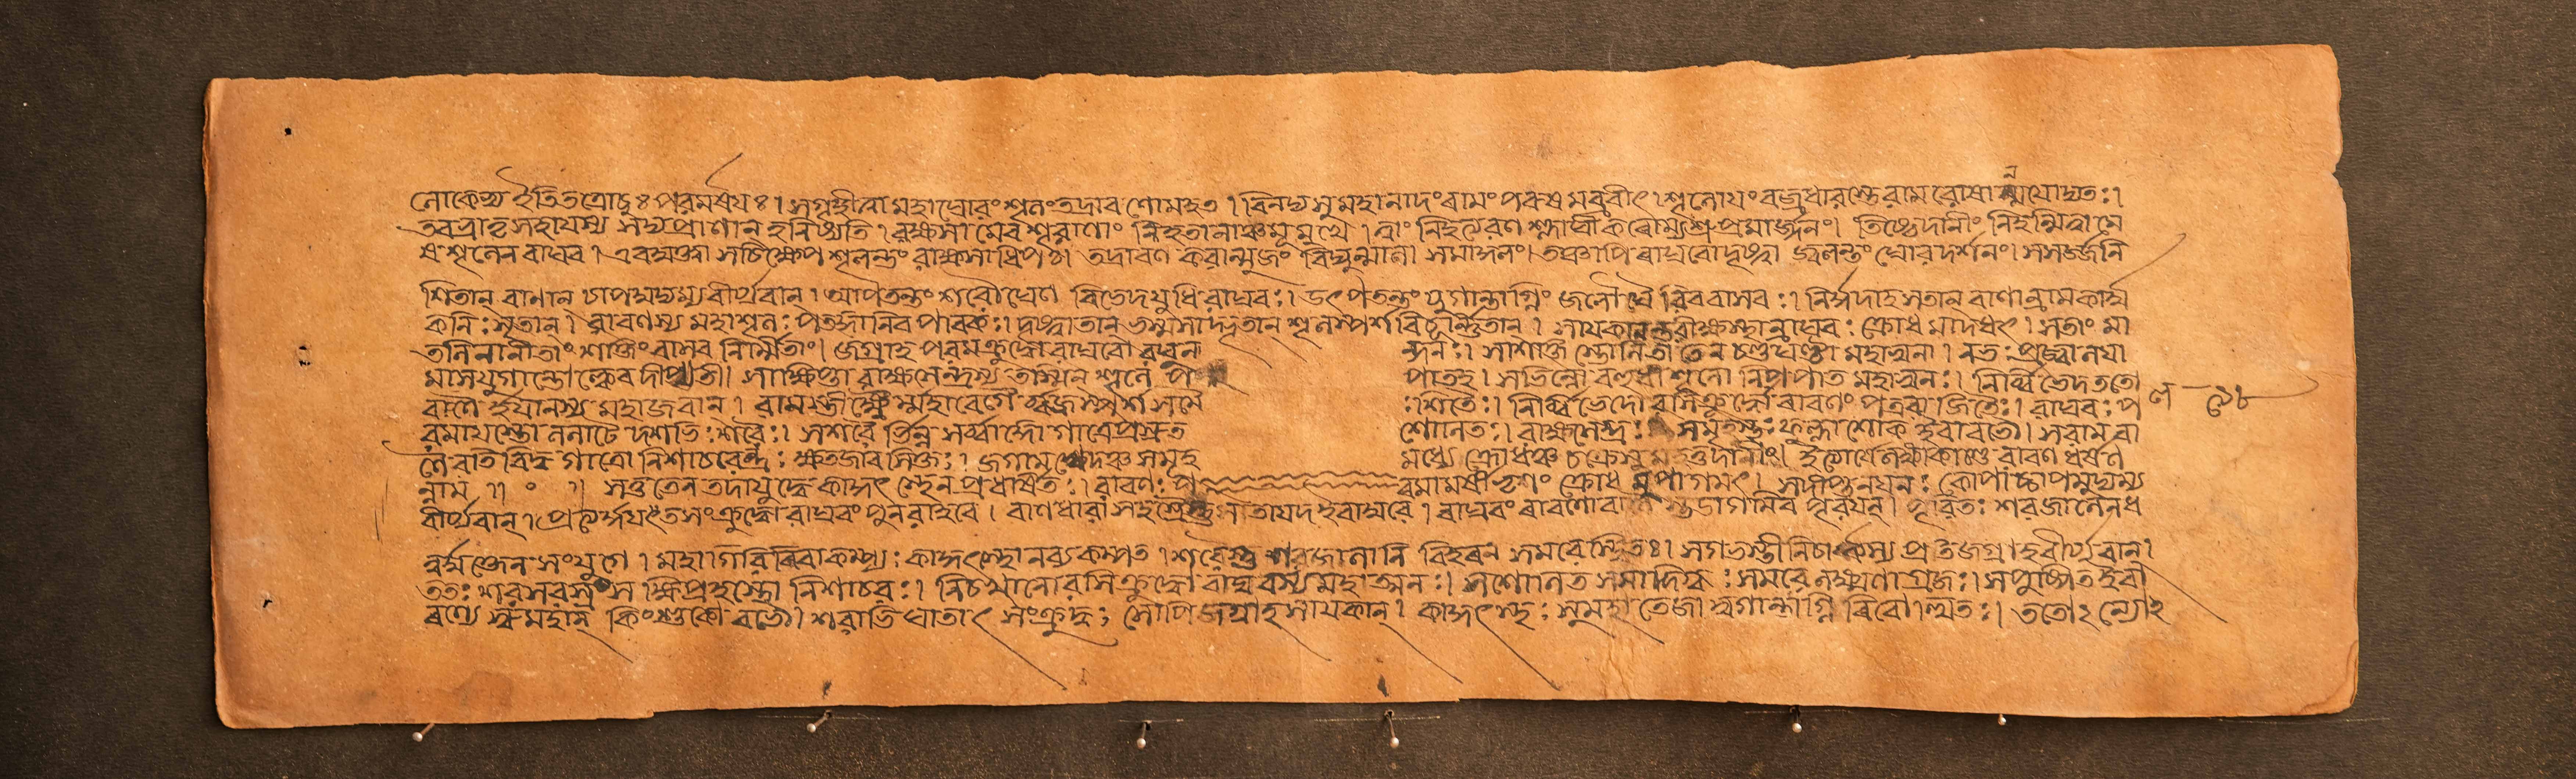 লোকেষ্ব ইতিতত্রোচুঃ পরমর্ষয়ঃ। সগৃহীত্বা মহাঘোরং শূলং তদ্রাবণোমহত। বিনদ্য সুমহানাদং রামং পরুষ মব্রবীৎ। শূলোয়ং বজ্রধারস্তে রাম রোষান্ময়োদ্যতঃ।
তবভ্রাতৃ সহায়স্য সদ্যপ্রাণান্ হরিষ্যতি। রক্ষসা মেব শূরাণাং নিহতানাঞ্চমূমুখে। ত্বাং নিহত্যরণ শ্লাঘী করোম্যশ্রু প্রমার্জ্জনং। তিষ্ঠেদানীং নিহন্মিত্বামে
ষ শূলেন রাঘব। এবমুক্ত্বা সচিক্ষেপ শূলন্তং রাক্ষসাধিপঃ। তদ্রাবণ করান্মুক্তং বিদ্যুন্মালা সমাকুলং। তঞ্চাপি রাঘবো দৃষ্ট্বা জ্বলন্তং ঘোর দর্শনং। সসর্জ্জনি
শিতান্ বাণান্ চাপমুদ্যম্য বীর্য্যবান্। আপতন্তং শরৌঘেণ বিভেদযুধি রাঘবঃ। উৎপতন্তং যুগান্তাগ্নিং জলৌঘৈ রিব বাসবঃ। নির্দ্দদাহ সতান্ বাণান্ রামকার্ম্মু
কনিঃসৃতান্। রাবণস্য মহাশূলঃ পতঙ্গানিব পাবকঃ। দৃষ্ট্বা তান্ ভস্মসাদ্ভূতান্ শূলসংস্পর্শ বিচূর্ণ্ণিতান্। সায়কানন্তরীক্ষস্থান্ রাঘবঃ ক্রোধ মাদধৎ। সতাং মা
তলিনানীতাং শক্তিং বাসব নির্ম্মিতাং। জগ্রাহ পরমক্রুদ্ধো রাঘবো রঘুন ন্দনঃ। সাশক্তি স্তোলিতা তেন চণ্ডঘণ্টা মহাত্মনা। নভঃ প্রজ্বালয়া
মাসযুগান্তোল্কেব দীপ্যতী। সাক্ষিপ্তা রাক্ষসেন্দ্রস্য তস্মিন্ শূলে প পাতহ। সভিন্নো বহুধা শূলো নিপপাত মহাত্মনঃ। নির্ব্বিভেদ ততো
বাণৈ র্হয়ানস্য মহাজবান্। রাম স্তীক্ষ্ণৈর্মহাবেগৈ র্ব্বজ্রস্পর্শ সমৈ ঃ শিতৈঃ। নির্ব্বিভেদো রসিক্রুদ্ধো রাবণং পত্রবাজিতৈঃ। রাঘবঃ প
রমায়স্তো ললাটে দশভিঃ শরৈঃ। সশরৈ র্ভিন্ন সর্ব্বাঙ্গো গাত্রপ্রস্রুত শোণিতঃ। রাক্ষসেন্দ্রঃ সমূহস্থঃ ফুল্লাশোক ইবাবভৌ। সরাম বা
ণৈ রতি বিদ্ধ গাত্রো নিশাচরেন্দ্রঃ ক্ষতজাব সিক্তঃ। জগাম খেদঞ্চ সমূহ মধ্যে ক্রোধঞ্চ চক্রেসু মহত্তদানীং। ইত্যার্ষেলঙ্কাকাণ্ডে রাবণ ধর্ষণ
ন্নাম ॥ ॰ ॥ সত্তু তেন তদাযুদ্ধে কাকুৎস্থেন প্রধর্ষিতঃ। রাবণঃ প রমামর্ষী ভৃশং ক্রোধ মুপাগমৎ। সদীপ্তনয়নঃ কোপাচ্চাপমুদ্যম্য
বীর্য্যবান্। প্রত্যর্দ্দয়ৎ তসংক্রুদ্ধো রাঘবং পুনরাহবে। বাণধারা সহস্রৈস্তু সতোয়দ ইবাম্বরে। রাঘবং রাবণোবাণৈ স্তড়াগমিব পূরয়ন্। পূরিতঃ শরজালেনধ
নুর্ম্মুক্তেন সংযুগে। মহাগিরিরিবাকম্প্যঃ কাকুৎস্থো নব্যকম্পত। শরৈস্তু শরজালানি বিহরন্ সমরে স্থিতঃ। সগভস্তীনিচার্কস্য প্রতিজগ্রাহবীর্য্যবান্।
ততঃ শরসহস্রাণি ক্ষিপ্রহস্তো নিশাচরঃ। নিচখানোরসিক্রুদ্ধো রাঘবস্য মহাত্মনঃ। সশোণিত সমাদিগ্ধঃ সমরে লক্ষ্মণাগ্রজঃ। সপুষ্পিত ইবা
রণ্যে সুমহান্ কিংশুকো বভৌ। শরাভিঘাতাৎ সংক্রুদ্ধঃ সোপি জগ্রাহ সায়কান্। কাকুৎস্থঃ সুমহাতেজা যুগান্তাগ্নি রিবোল্থিতঃ। ততোঽন্যোঽ
ল ১৮